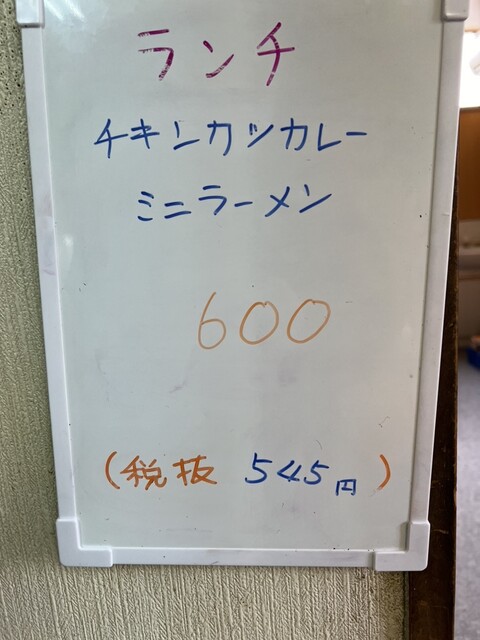 ランチ
チキンカツカレー
ミニラーメン
600
(税抜 545円)